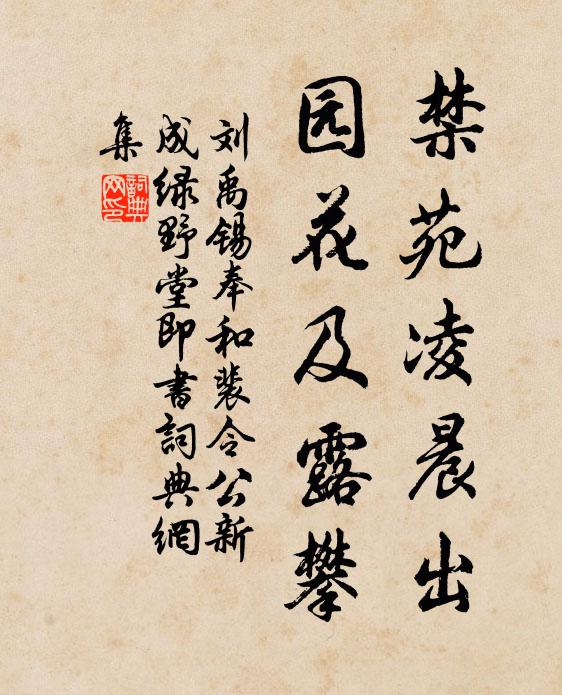 禁苑凌晨出
园花及露攀
刘禹锡奉和裴令公新
成绿野堂即书詞典網
集
詞典
网印